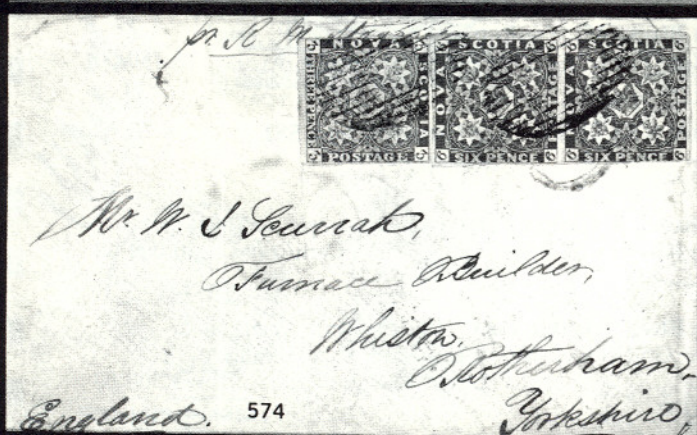 pr. R M
NOVA SCOTIA POSTAGE THREE PENCE
NOVA SCOTIA POSTAGE SIX PENCE
NOVA SCOTIA POSTAGE SIX PENCE
Mr. W. S Scurrah,
Furnace Builder,
Whiston,
Rotherham,
Yorkshire,
England.
574